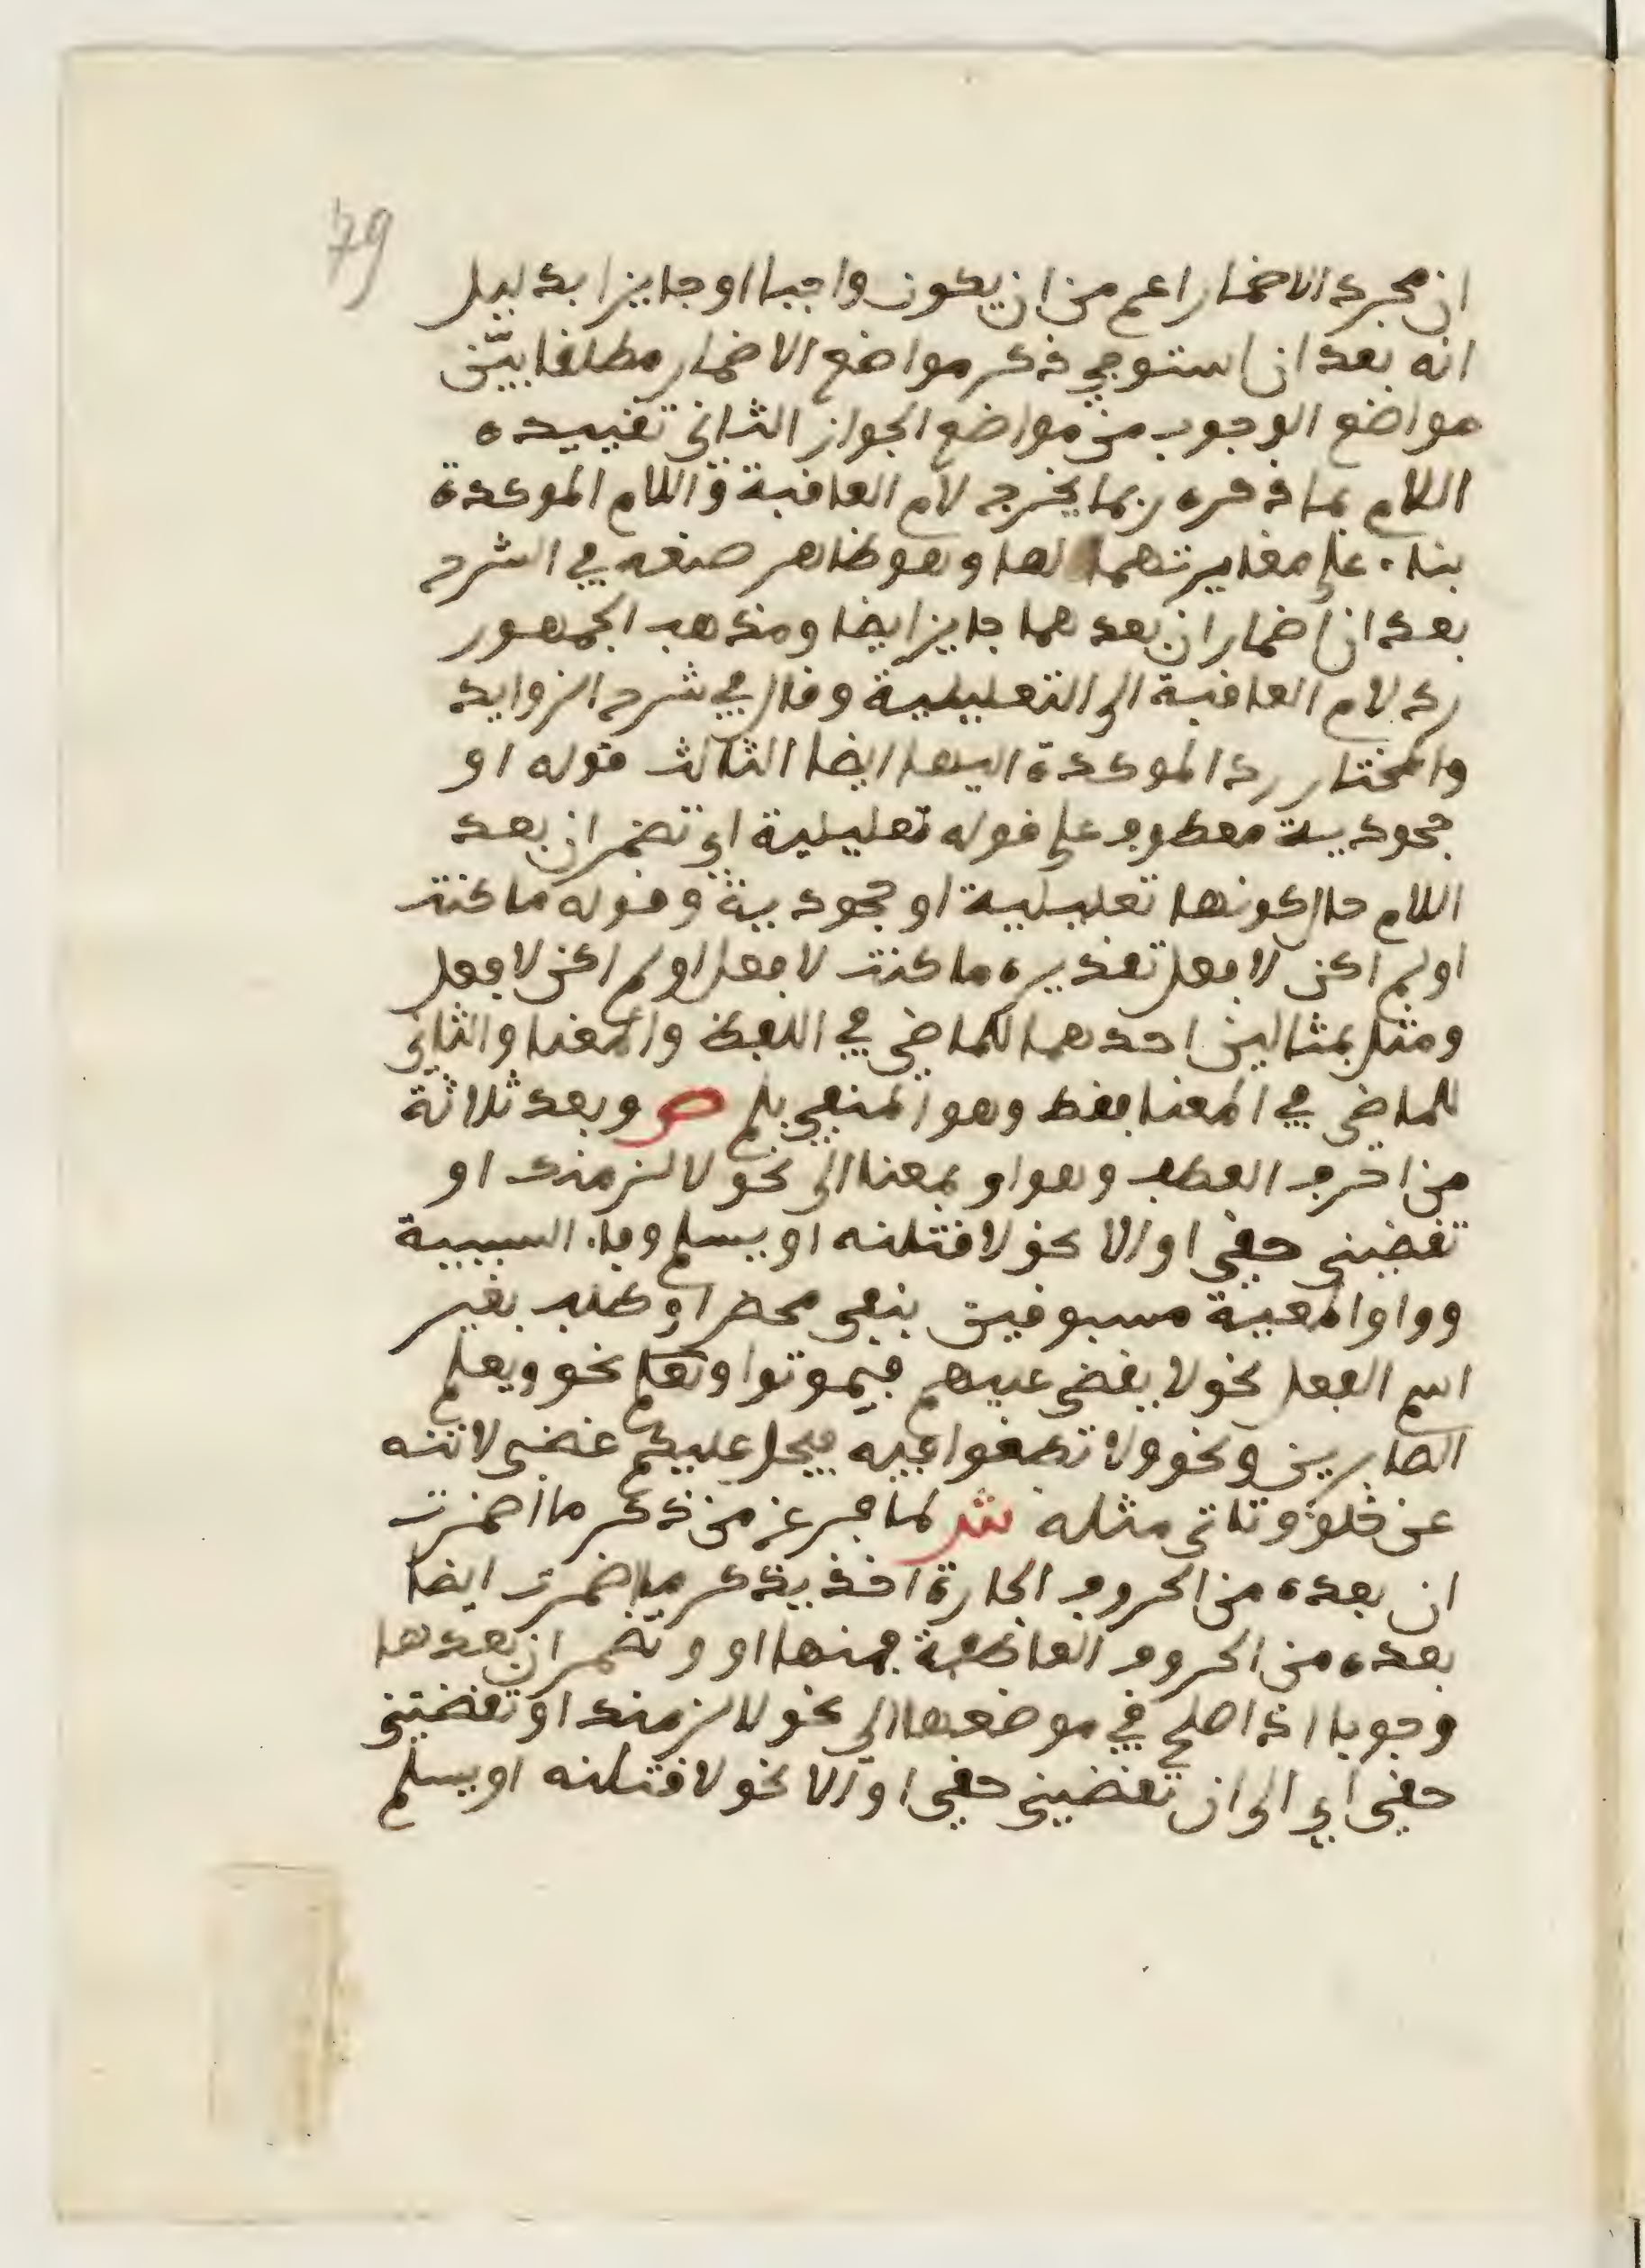 79
ان مجرد الاضمار اعم من ان يكون واجبا او جايزا بدليل
انه بعد ان استوفى ذكر مواضع الاضمار مطلقا بيّن
مواضع الوجوب من مواضع الجواز الثانى تقييده
اللام بما ذكره ربما يخرج لام العاقبة و اللام الموكدة
بناء على مغايرتهما لها وهو ظاهر صنعه في الشرح
بعد ان اضمار ان بعدهما جايز ايضا ومذهب الجمهور
رد لام العاقبة الى التعليلية وقال في شرح الزوايد
والمختار رد الموكدة اليها ايضا الثالث قوله او
جحودية معطوف على قوله تعليلية اي تضمر ان بعد
اللام حال كونها تعليلية او جحودية وقوله ما كنت
اولم اكن لافعل تقديره ما كنت لافعل اولم اكن لافعل
ومثل بمثالين احدهما للماضي في اللفظ والمعنا والثانى
للماضي في المعنا فقط وهو المنفي بلم ص وبعد ثلاثة
من احرف العطف وهو او بمعنا الى نحو لالزمنك او
تقضينى حقي او الا نحو لاقتلنه او يسلم وفاء السببية
وواو المعية مسبوقين بنفى محض او طلب بغير
اسم الفعل نحو لا يقضى عليهم فيموتوا ونعلم نحو ويعلم
الصابرين ونحو ولا تطغوا فيه فيحل عليكم غضبى لا تنه
عن خلق وتاتى مثله ش لما فرغ من ذكر ما اضمرت
ان بعده من الحروف الجارة اخذ يذكر ما اضمرت ايضا
بعده من الحروف العاطفة فمنها او و تضمر ان بعدها
وجوبا اذا صلح في موضعها الى نحو لالزمنك او تقضينى
حقي اي الى ان تقضينى حقي او الا نحو لاقتلنه او يسلم